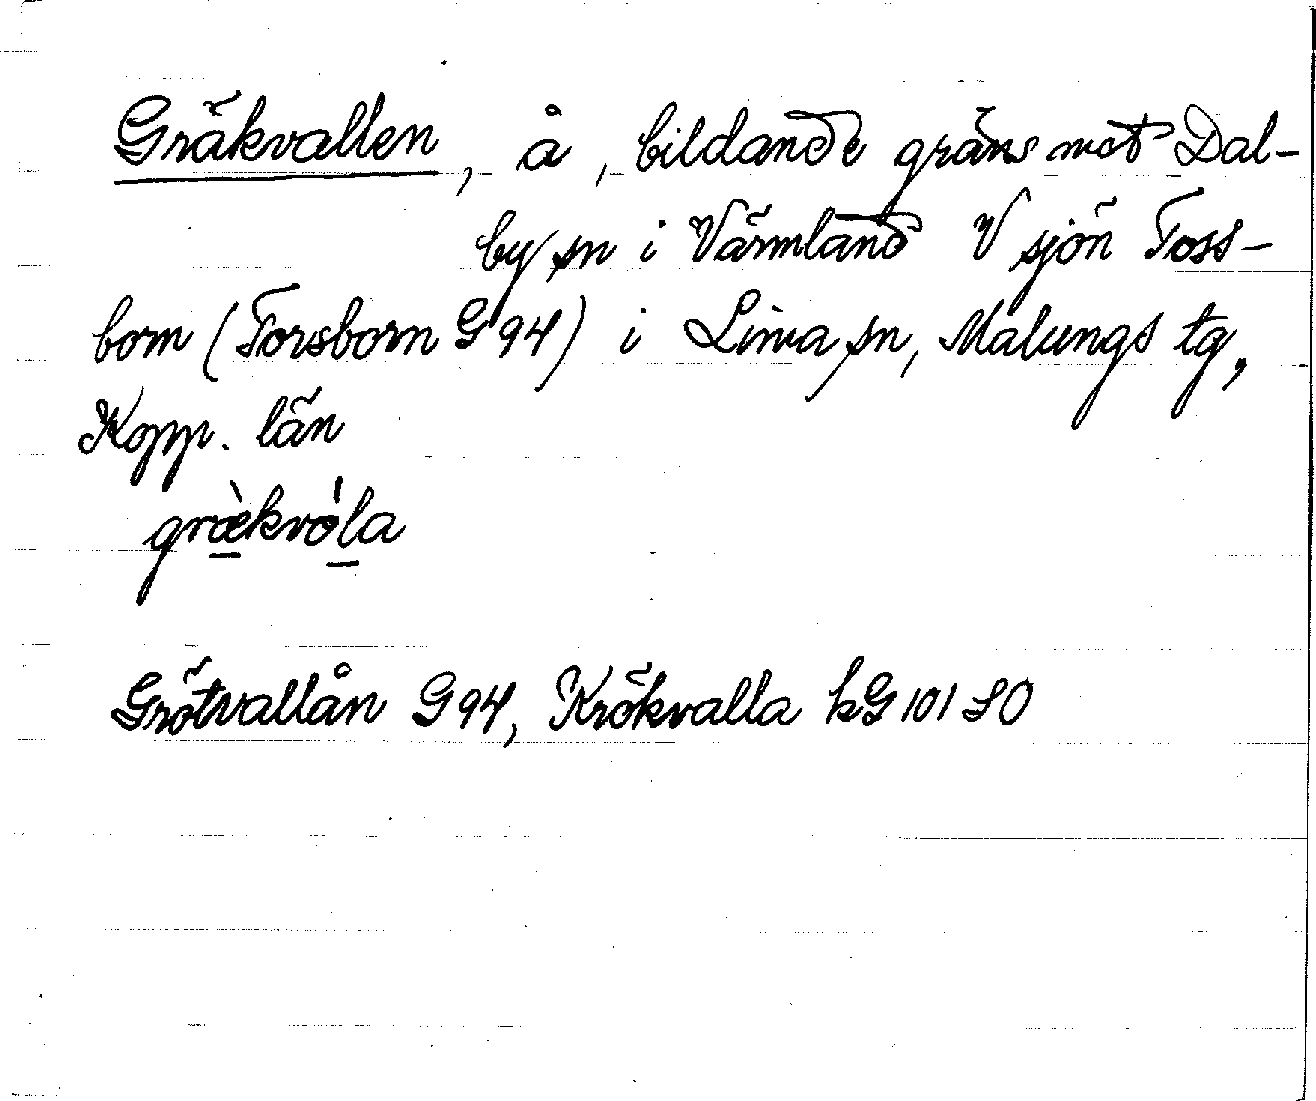 Gräkvallen, å, bildande gräns mot Dal-
by sn i Värmland V sjön Toss-
born (Forsborn G 94) i Lima sn, Malungs tg,
Kopp. län
græ̀kvòla
Grötvallån G 94, Krökvalla hG 101 SO